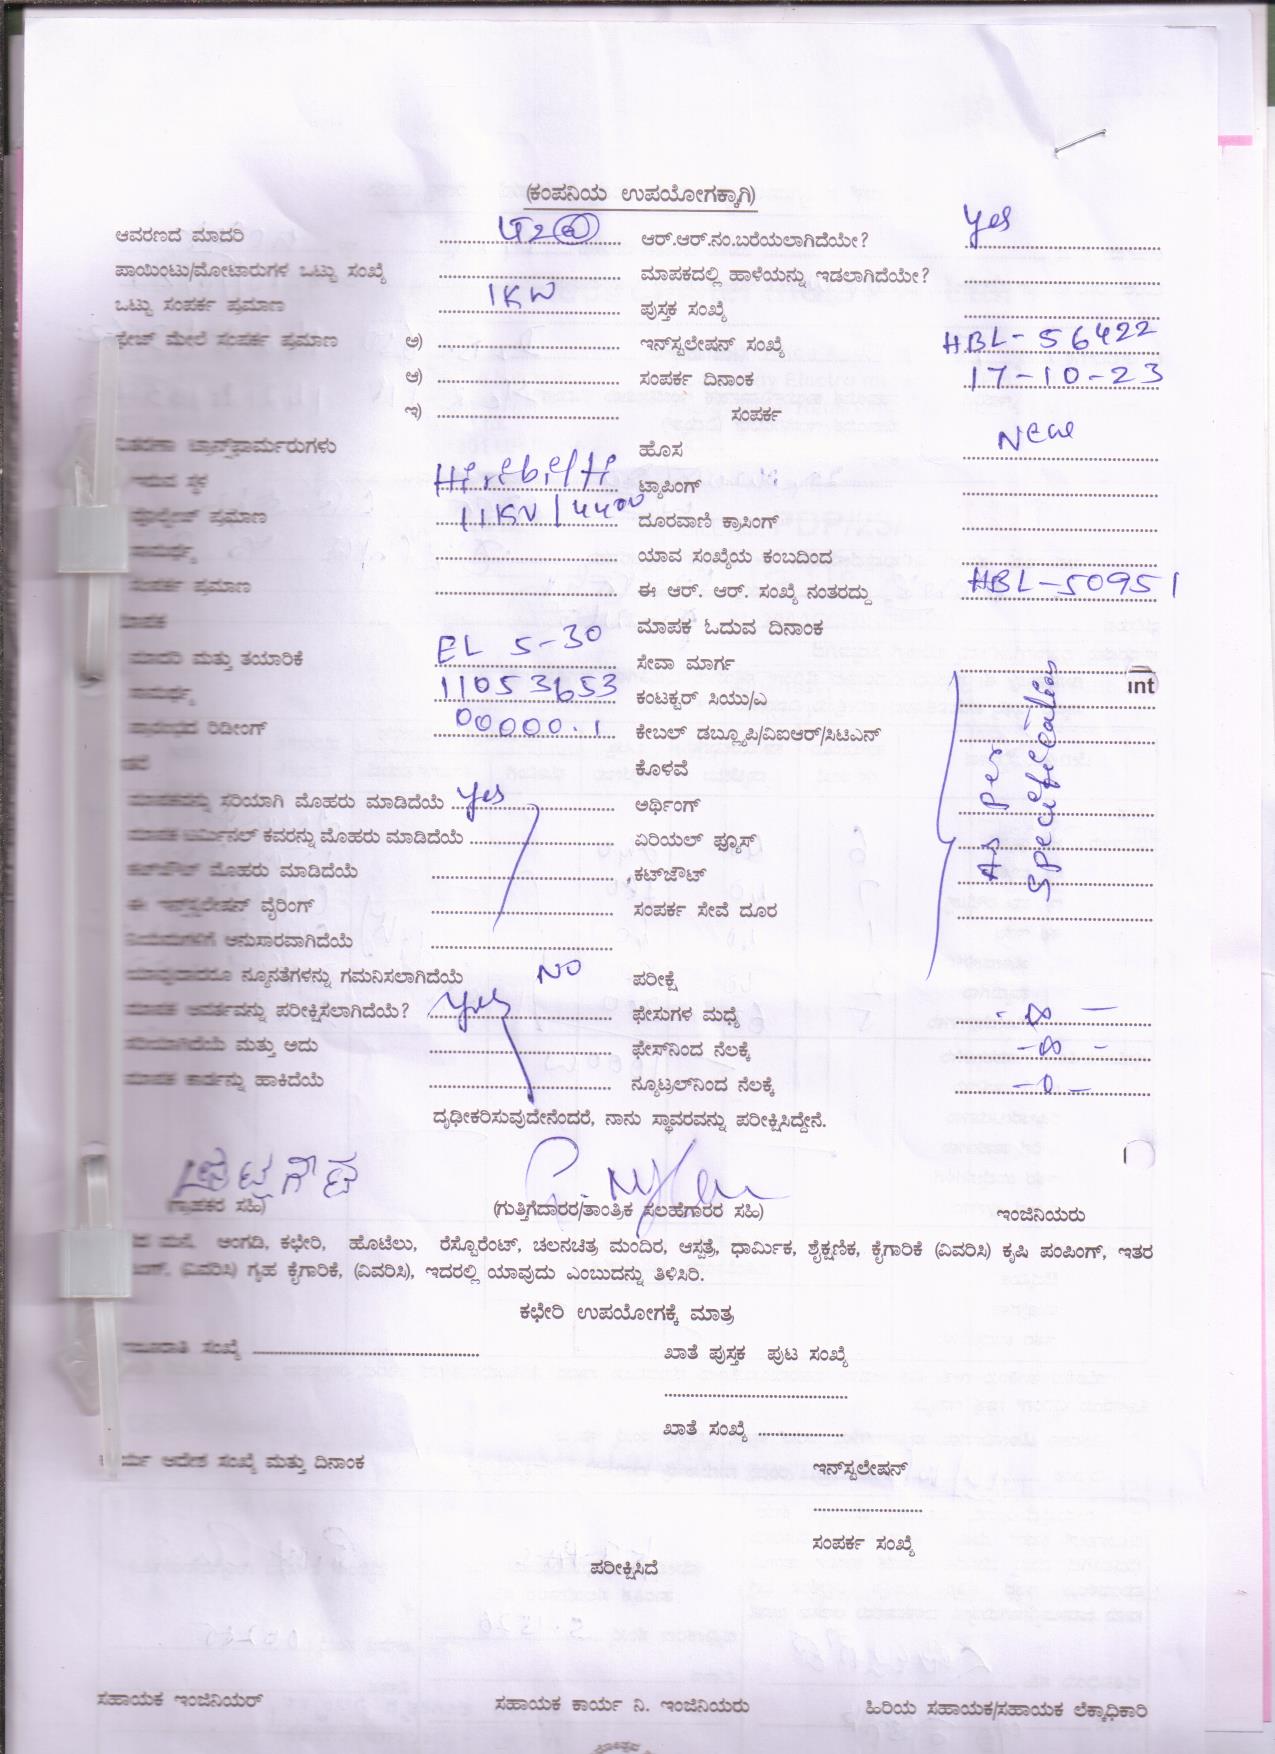 (ಕಂಪನಿಯ ಉಪಯೋಗಕ್ಕಾಗಿ)
ಆವರಣದ ಮಾದರಿ LT2(a) ಆರ್.ಆರ್.ನಂ.ಬರೆಯಲಾಗಿದೆಯೇ? Yes
ಪಾಯಿಂಟು/ಮೋಟಾರುಗಳ ಒಟ್ಟು ಸಂಖ್ಯೆ ಮಾಪಕದಲ್ಲಿ ಹಾಳೆಯನ್ನು ಇಡಲಾಗಿದೆಯೇ?
ಒಟ್ಟು ಸಂಪರ್ಕ ಪ್ರಮಾಣ 1KW ಪುಸ್ತಕ ಸಂಖ್ಯೆ
ಫೇಜ್ ಮೇಲೆ ಸಂಪರ್ಕ ಪ್ರಮಾಣ ಅ) ಇನ್‌ಸ್ಟಲೇಷನ್ ಸಂಖ್ಯೆ HBL-56422
ಆ) ಸಂಪರ್ಕ ದಿನಾಂಕ 17-10-23
ಇ) ಸಂಪರ್ಕ
ವಿತರಣಾ ಟ್ರಾನ್ಸ್‌ಫಾರ್ಮರುಗಳು ಹೊಸ New
ಇರುವ ಸ್ಥಳ Hirebilfti ಟ್ಯಾಪಿಂಗ್
ವೋಲ್ಟೇಜ್ ಪ್ರಮಾಣ 11KV/440V ದೂರವಾಣಿ ಕ್ರಾಸಿಂಗ್
ಸಾಮರ್ಥ್ಯ ಯಾವ ಸಂಖ್ಯೆಯ ಕಂಬದಿಂದ
ಸಂಪರ್ಕ ಪ್ರಮಾಣ ಈ ಆರ್. ಆರ್. ಸಂಖ್ಯೆ ನಂತರದ್ದು HBL-50951
ಮಾಪಕ ಮಾಪಕ ಓದುವ ದಿನಾಂಕ
ಮಾದರಿ ಮತ್ತು ತಯಾರಿಕೆ EL 5-30 ಸೇವಾ ಮಾರ್ಗ
ಸಾಮರ್ಥ್ಯ 11053653 ಕಂಟಕ್ಟರ್ ಸಿಯು/ಎ int
ಪ್ರಾರಂಭದ ರಿಡೀಂಗ್ 00000.1 ಕೇಬಲ್ ಡಬ್ಲ್ಯೂಪಿ/ವಿಐಆರ್/ಸಿಟಿಎನ್ As per Specification
ಕೊಳವೆ
ಮಾಪಕವನ್ನು ಸರಿಯಾಗಿ ಮೊಹರು ಮಾಡಿದೆಯೆ Yes ಅರ್ಥಿಂಗ್
ಮಾಪಕ ಟರ್ಮಿನಲ್ ಕವರನ್ನು ಮೊಹರು ಮಾಡಿದೆಯೆ ಏರಿಯಲ್ ಫ್ಯೂಸ್
ಕಟ್‌ಔಟ್ ಮೊಹರು ಮಾಡಿದೆಯೆ ಕಟ್‌ಔಟ್
ಈ ಇನ್‌ಸ್ಟಲೇಷನ್ ವೈರಿಂಗ್ ಸಂಪರ್ಕ ಸೇವೆ ದೂರ
ನಿಯಮಗಳಿಗೆ ಅನುಸಾರವಾಗಿದೆಯೆ
ಯಾವುದಾದರೂ ನ್ಯೂನತೆಗಳನ್ನು ಗಮನಿಸಲಾಗಿದೆಯೆ NO ಪರೀಕ್ಷೆ
ಮಾಪಕ ಆವರ್ತವನ್ನು ಪರೀಕ್ಷಿಸಲಾಗಿದೆಯೆ? Yes ಫೇಸುಗಳ ಮಧ್ಯೆ -∞-
ಸರಿಯಾಗಿದೆಯೆ ಮತ್ತು ಅದು ಫೇಸ್‌ನಿಂದ ನೆಲಕ್ಕೆ -∞-
ಮಾಪಕ ಕಾರ್ಡನ್ನು ಹಾಕಿದೆಯೆ ನ್ಯೂಟ್ರಲ್‌ನಿಂದ ನೆಲಕ್ಕೆ -0-
ದೃಢೀಕರಿಸುವುದೇನೆಂದರೆ, ನಾನು ಸ್ಥಾವರವನ್ನು ಪರೀಕ್ಷಿಸಿದ್ದೇನೆ.
(ಗ್ರಾಹಕರ ಸಹಿ) (ಗುತ್ತಿಗೆದಾರರ/ತಾಂತ್ರಿಕ ಸಲಹೆಗಾರರ ಸಹಿ) ಇಂಜಿನಿಯರು
ಮನೆ, ಅಂಗಡಿ, ಕಛೇರಿ, ಹೊಟೆಲು, ರೆಸ್ಟೊರೆಂಟ್, ಚಲನಚಿತ್ರ ಮಂದಿರ, ಆಸ್ಪತ್ರೆ, ಧಾರ್ಮಿಕ, ಶೈಕ್ಷಣಿಕ, ಕೈಗಾರಿಕೆ (ವಿವರಿಸಿ) ಕೃಷಿ ಪಂಪಿಂಗ್, ಇತರ
(ವಿವರಿಸಿ) ಗೃಹ ಕೈಗಾರಿಕೆ, (ವಿವರಿಸಿ), ಇದರಲ್ಲಿ ಯಾವುದು ಎಂಬುದನ್ನು ತಿಳಿಸಿರಿ.
ಕಛೇರಿ ಉಪಯೋಗಕ್ಕೆ ಮಾತ್ರ
ಸಂಖ್ಯೆ ಖಾತೆ ಪುಸ್ತಕ ಪುಟ ಸಂಖ್ಯೆ
ಖಾತೆ ಸಂಖ್ಯೆ
ಕಾರ್ಯ ಆದೇಶ ಸಂಖ್ಯೆ ಮತ್ತು ದಿನಾಂಕ ಇನ್‌ಸ್ಟಲೇಷನ್
ಸಂಪರ್ಕ ಸಂಖ್ಯೆ
ಪರೀಕ್ಷಿಸಿದೆ
ಸಹಾಯಕ ಇಂಜಿನಿಯರ್ ಸಹಾಯಕ ಕಾರ್ಯ ನಿ. ಇಂಜಿನಿಯರು ಹಿರಿಯ ಸಹಾಯಕ/ಸಹಾಯಕ ಲೆಕ್ಕಾಧಿಕಾರಿ